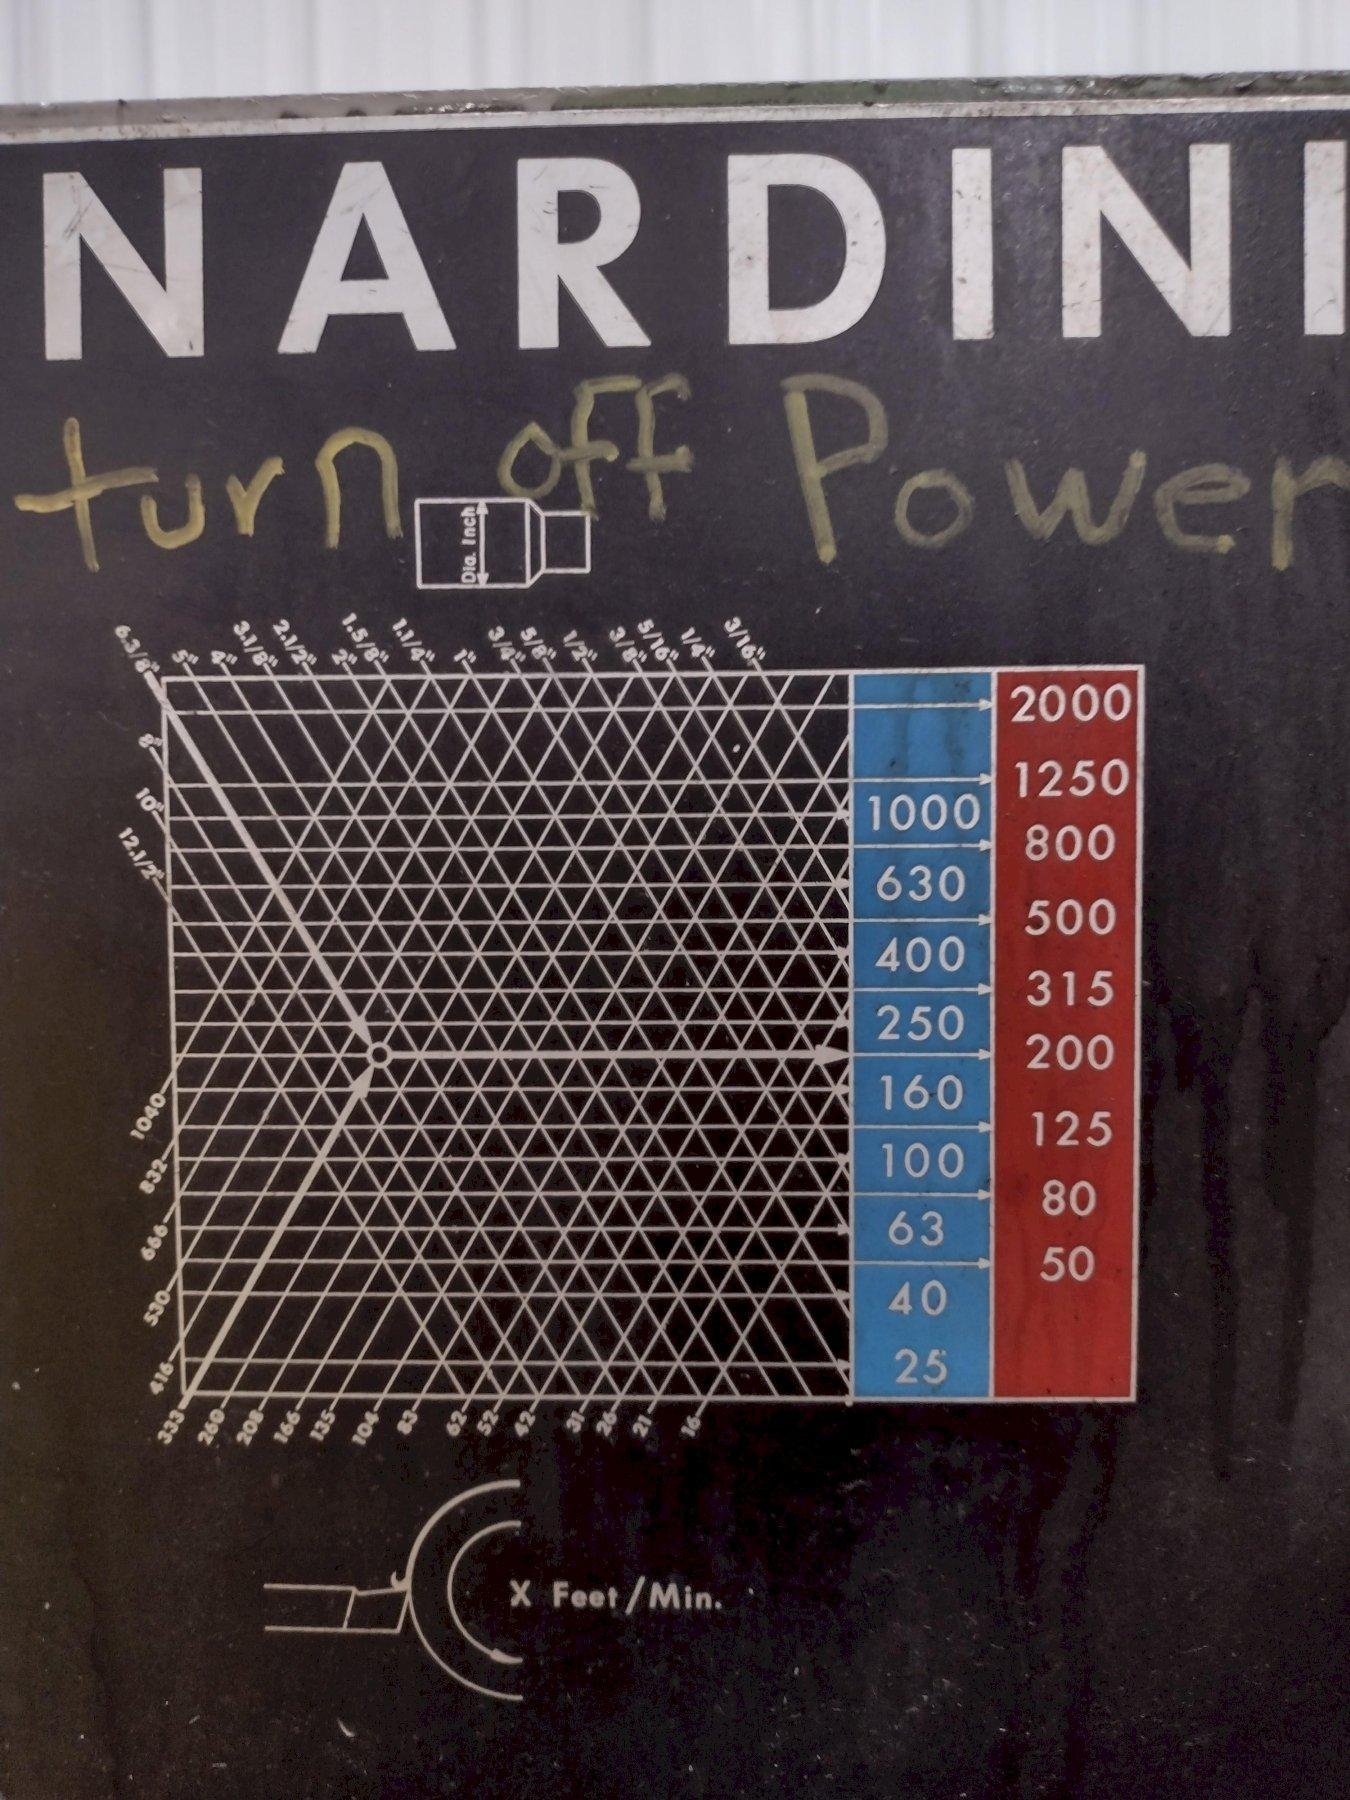 NARDINI
turn off Power
Dia. Inch
6.3/8" 5" 4" 3.1/8" 2.1/2" 2" 1.5/8" 1.1/4" 1" 3/4" 5/8" 1/2" 3/8" 5/16" 1/4" 3/16"
8"
10"
12.1/2"
2000
1250
1000
800
630
500
400
315
250
200
160
125
100
80
63
50
40
25
1040
832
666
530
416
333 260 208 166 135 104 83 62 52 42 31 26 21 16
X Feet/Min.